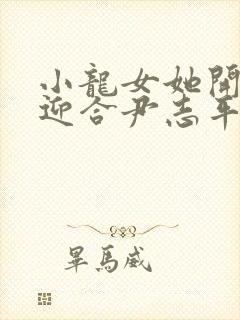 小龍女她開
迎合尹志平
畢馬威